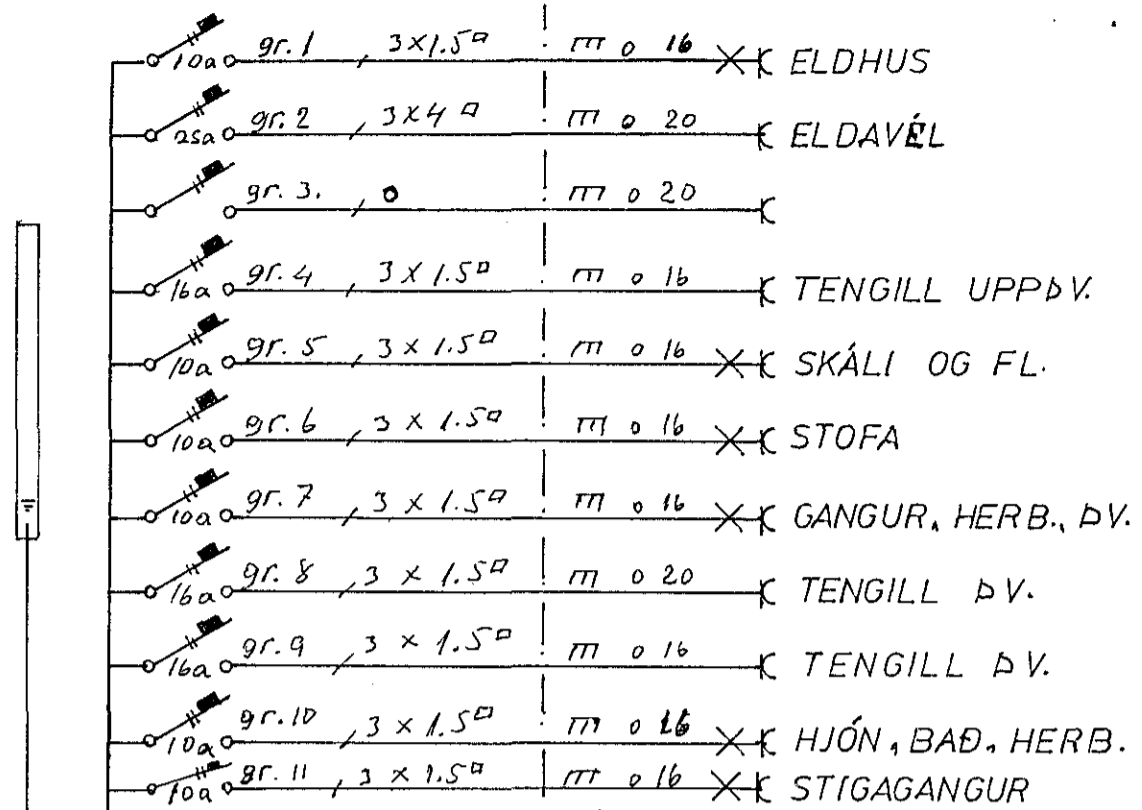 10a gr. 1 3×1.5▱ m o 16 ELDHUS
25a gr. 2 3×4 ▱ m o 20 ELDAVÉL
gr. 3. o m o 20
16a gr. 4 3 × 1.5▱ m o 16 TENGILL UPPÞV.
10a gr. 5 3 × 1.5▱ m o 16 SKÁLI OG FL.
10a gr. 6 3 × 1.5▱ m o 16 STOFA
10a gr. 7 3 × 1.5▱ m o 16 GANGUR, HERB., ÞV.
16a gr. 8 3 × 1.5▱ m o 20 TENGILL ÞV.
16a gr. 9 3 × 1.5▱ m o 16 TENGILL ÞV.
10a gr. 10 3 × 1.5▱ m o 16 HJÓN, BAÐ, HERB.
10a gr. 11 3 × 1.5▱ m o 16 STIGAGANGUR